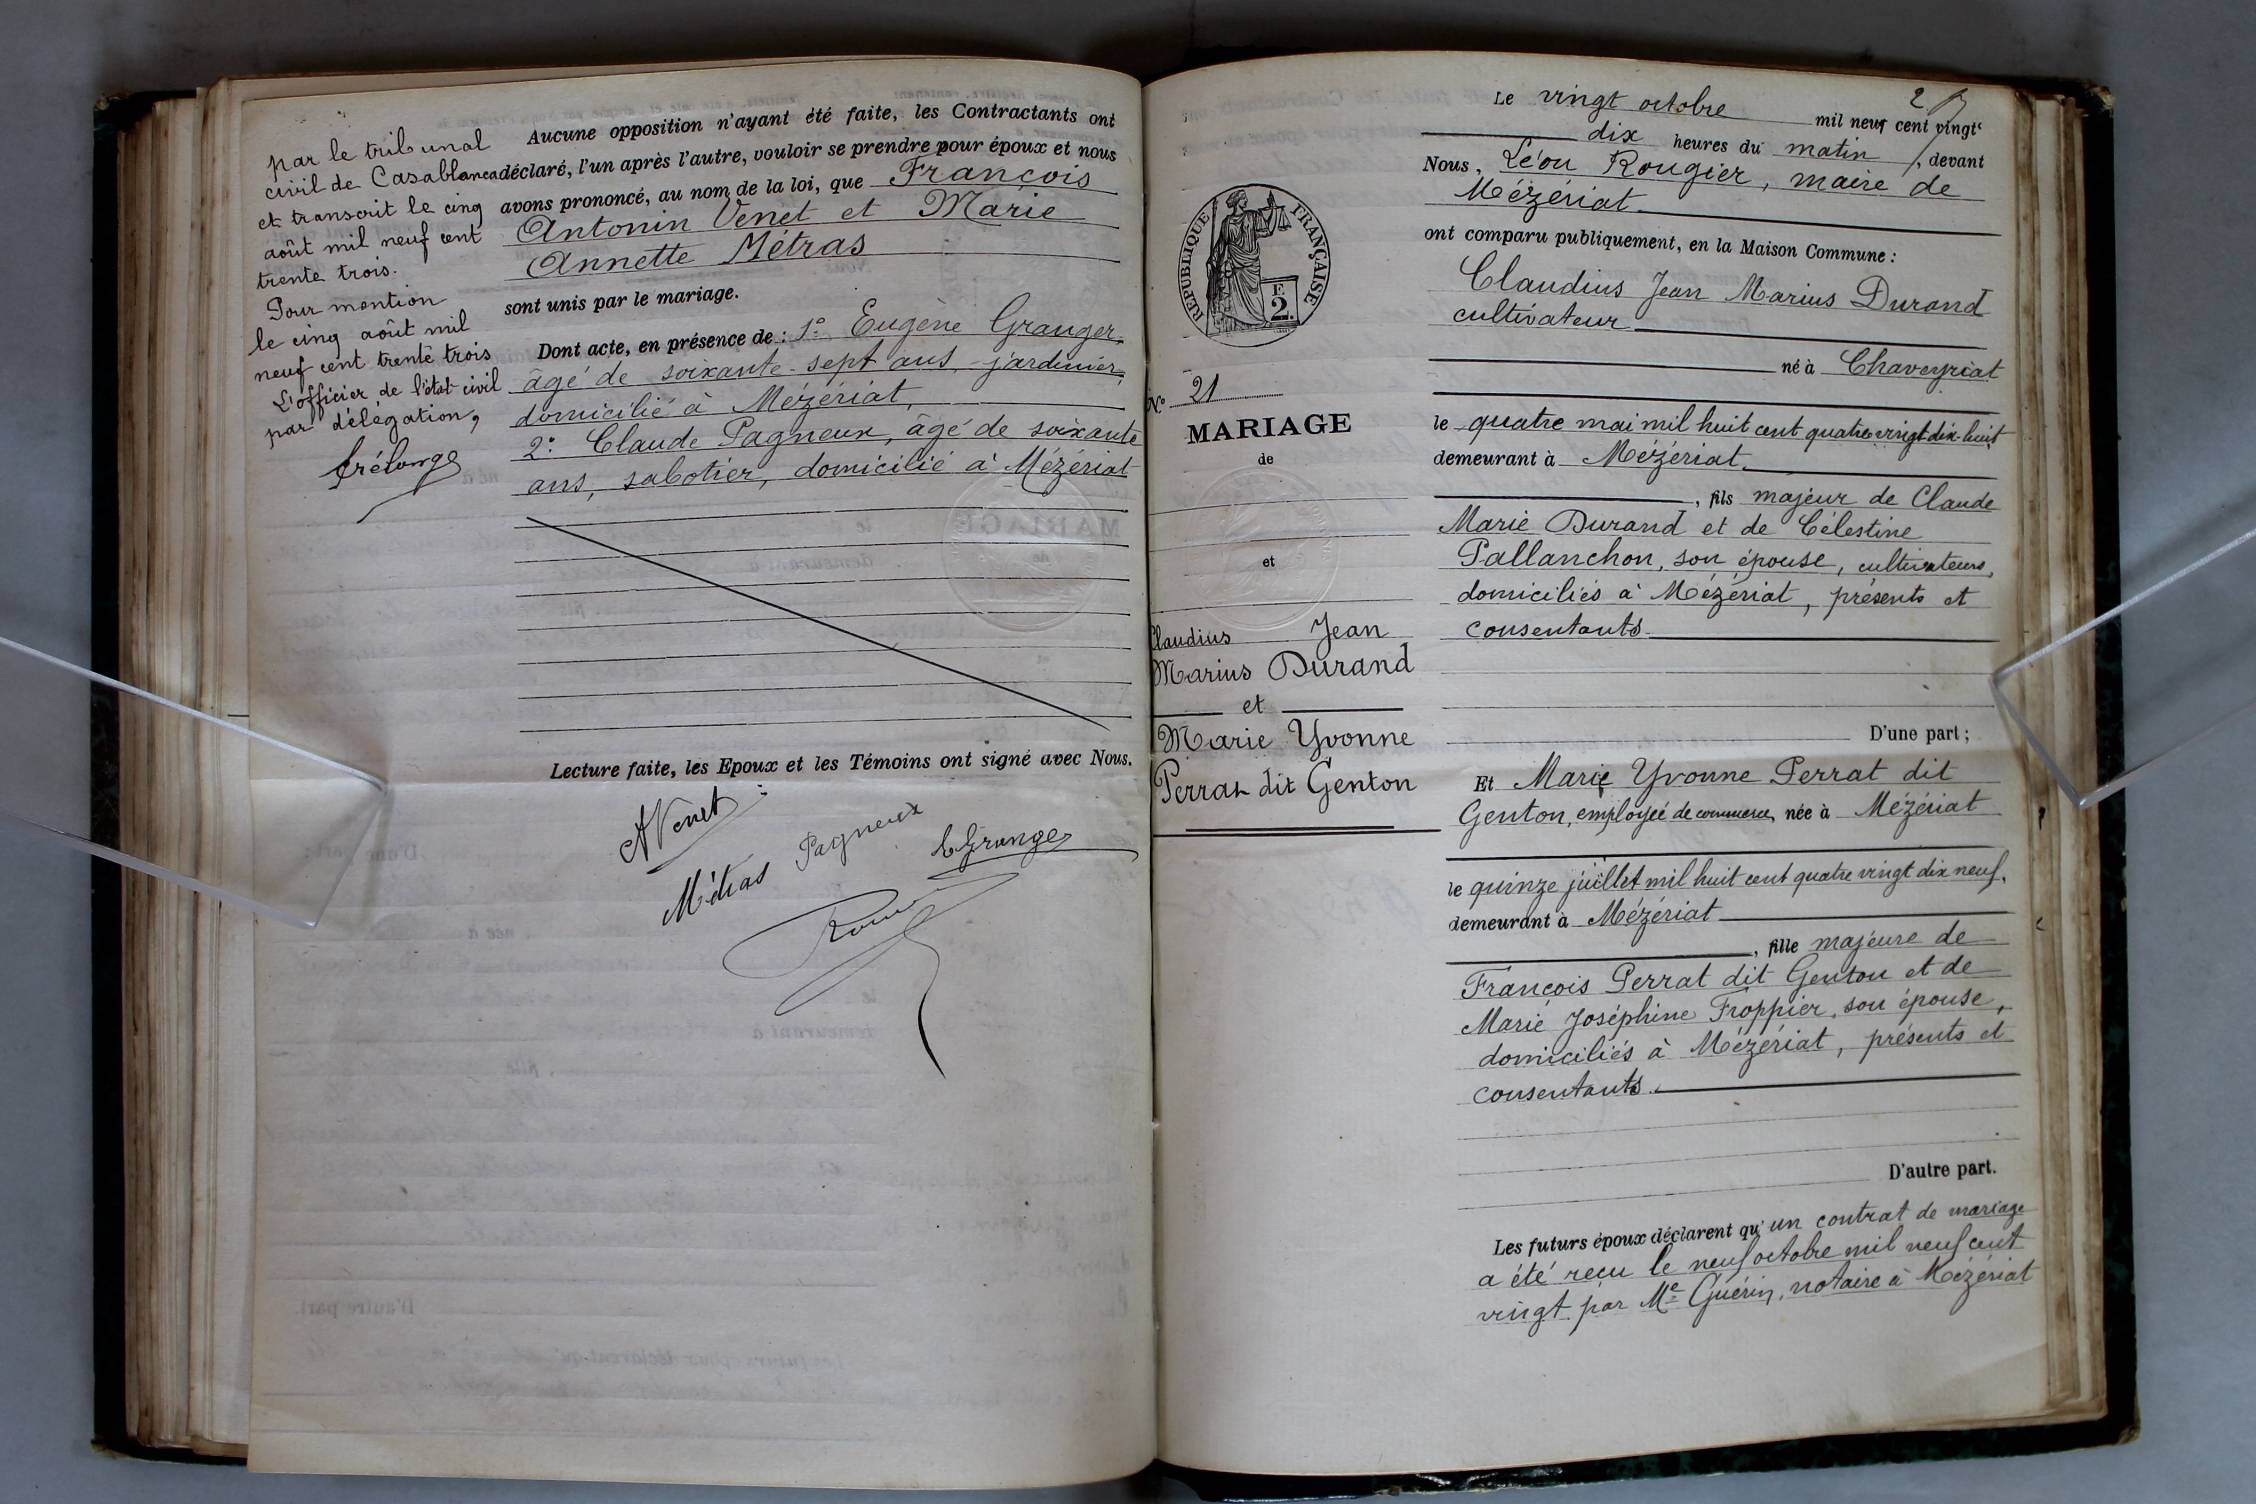 par le tribunal
civil de Casablanca
et transcrit le cinq
août mil neuf cent
trente trois.
Pour mention
le cinq août mil
neuf cent trente trois
L'officier de l'état civil
par délégation,
Aucune opposition n'ayant été faite, les Contractants ont
déclaré, l'un après l'autre, vouloir se prendre pour époux et nous
avons prononcé, au nom de la loi, que François
Antonin Venet et Marie
Annette Métras
sont unis par le mariage.
Dont acte, en présence de : 1° Eugène Granger,
âgé de soixante-sept ans, jardinier,
domicilié à Mézériat,
2° Claude Pagneux, âgé de soixante
ans, sabotier, domicilié à Mézériat
Lecture faite, les Epoux et les Témoins ont signé avec Nous.
AVenet
Métras Pagneux EGranger
RÉPUBLIQUE FRANÇAISE
E
2.
N° 21
MARIAGE
de
et
Claudius Jean
Marius Durand
et
Marie Yvonne
Perrat dit Genton
Le vingt octobre mil neuf cent vingt
dix heures du matin, devant
Nous, Léon Rougier, maire de
Mézériat
ont comparu publiquement, en la Maison Commune :
Claudius Jean Marius Durand
cultivateur
né à Chaveyriat
le quatre mai mil huit cent quatre vingt dix-huit
demeurant à Mézériat
, fils majeur de Claude
Marie Durand et de Célestine
Pallanchon, son épouse, cultivateurs,
domiciliés à Mézériat, présents et
consentants
D'une part ;
Et Marie Yvonne Perrat dit
Genton, employée de commerce, née à Mézériat
le quinze juillet mil huit cent quatre vingt dix neuf,
demeurant à Mézériat
, fille majeure de
François Perrat dit Genton et de
Marie Joséphine Froppier, son épouse,
domiciliés à Mézériat, présents et
consentants.
D'autre part.
Les futurs époux déclarent qu'un contrat de mariage
a été reçu le neuf octobre mil neuf cent
vingt par Me Guérin, notaire à Mézériat